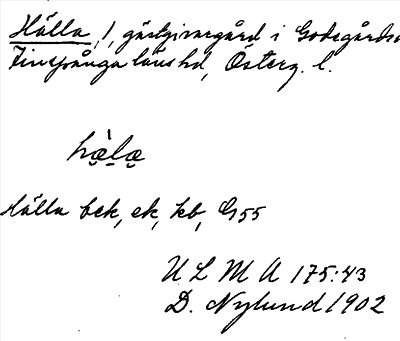 Hälla, 1, gästgivaregård i Godegårds
Finspånga läns hd, Österg. l.
hæ̀læ
Hälla bek, ek, kb, G55
ULMA 175:43
D. Nylund 1902